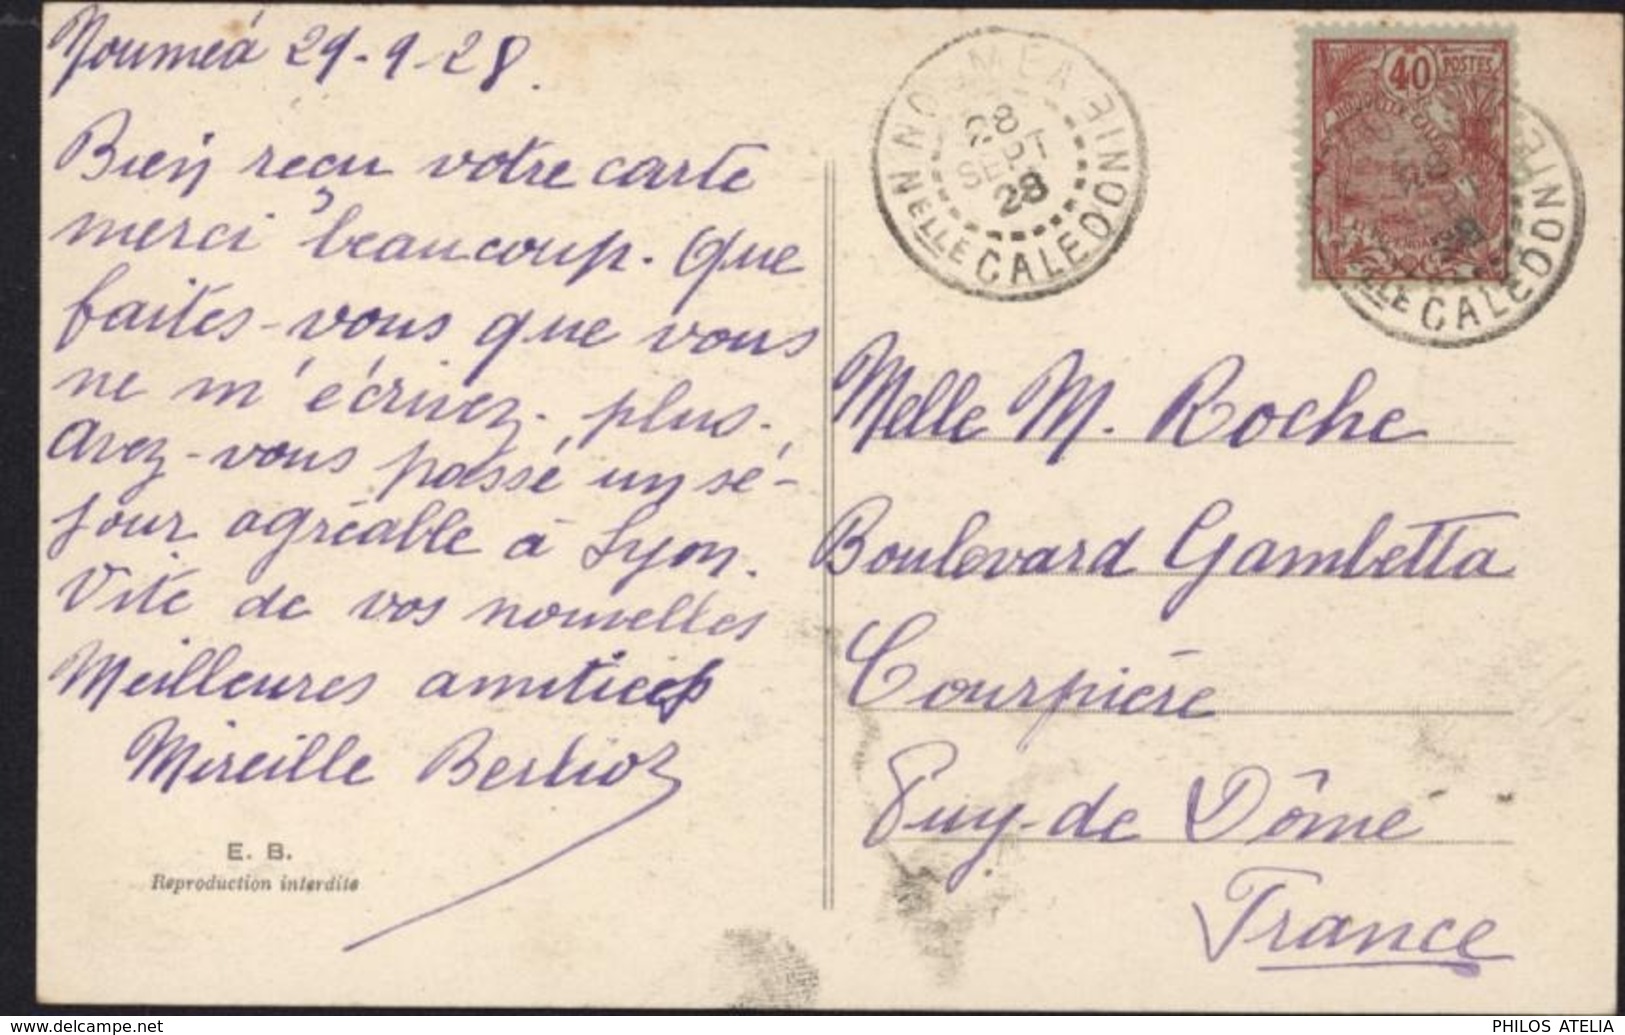 Nouméa 29-9-28.
Bien reçu votre carte
merci beaucoup. Que
faites-vous que vous
ne m'écrivez plus.
Avez-vous passé un sé-
jour agréable à Lyon.
Vite de vos nouvelles
Meilleures amitiés
Mireille Berlioz
E. B.
Reproduction interdite
NOUMEA
NELLE CALEDONIE
28
SEPT
28
40
POSTES
NELLE CALEDONIE
Melle M. Roche
Boulevard Gambetta
Courpière
Puy-de Dôme
France
www.delcampe.net
PHILOS ATELIA